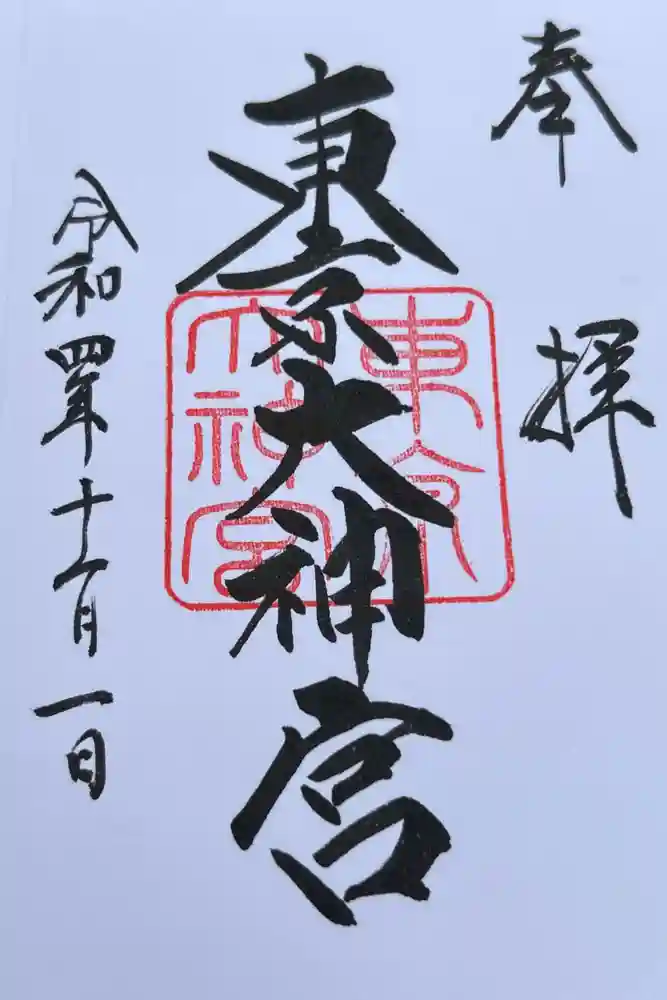 奉拝
東京大神宮
東京
大神宮
令和四年十一月一日